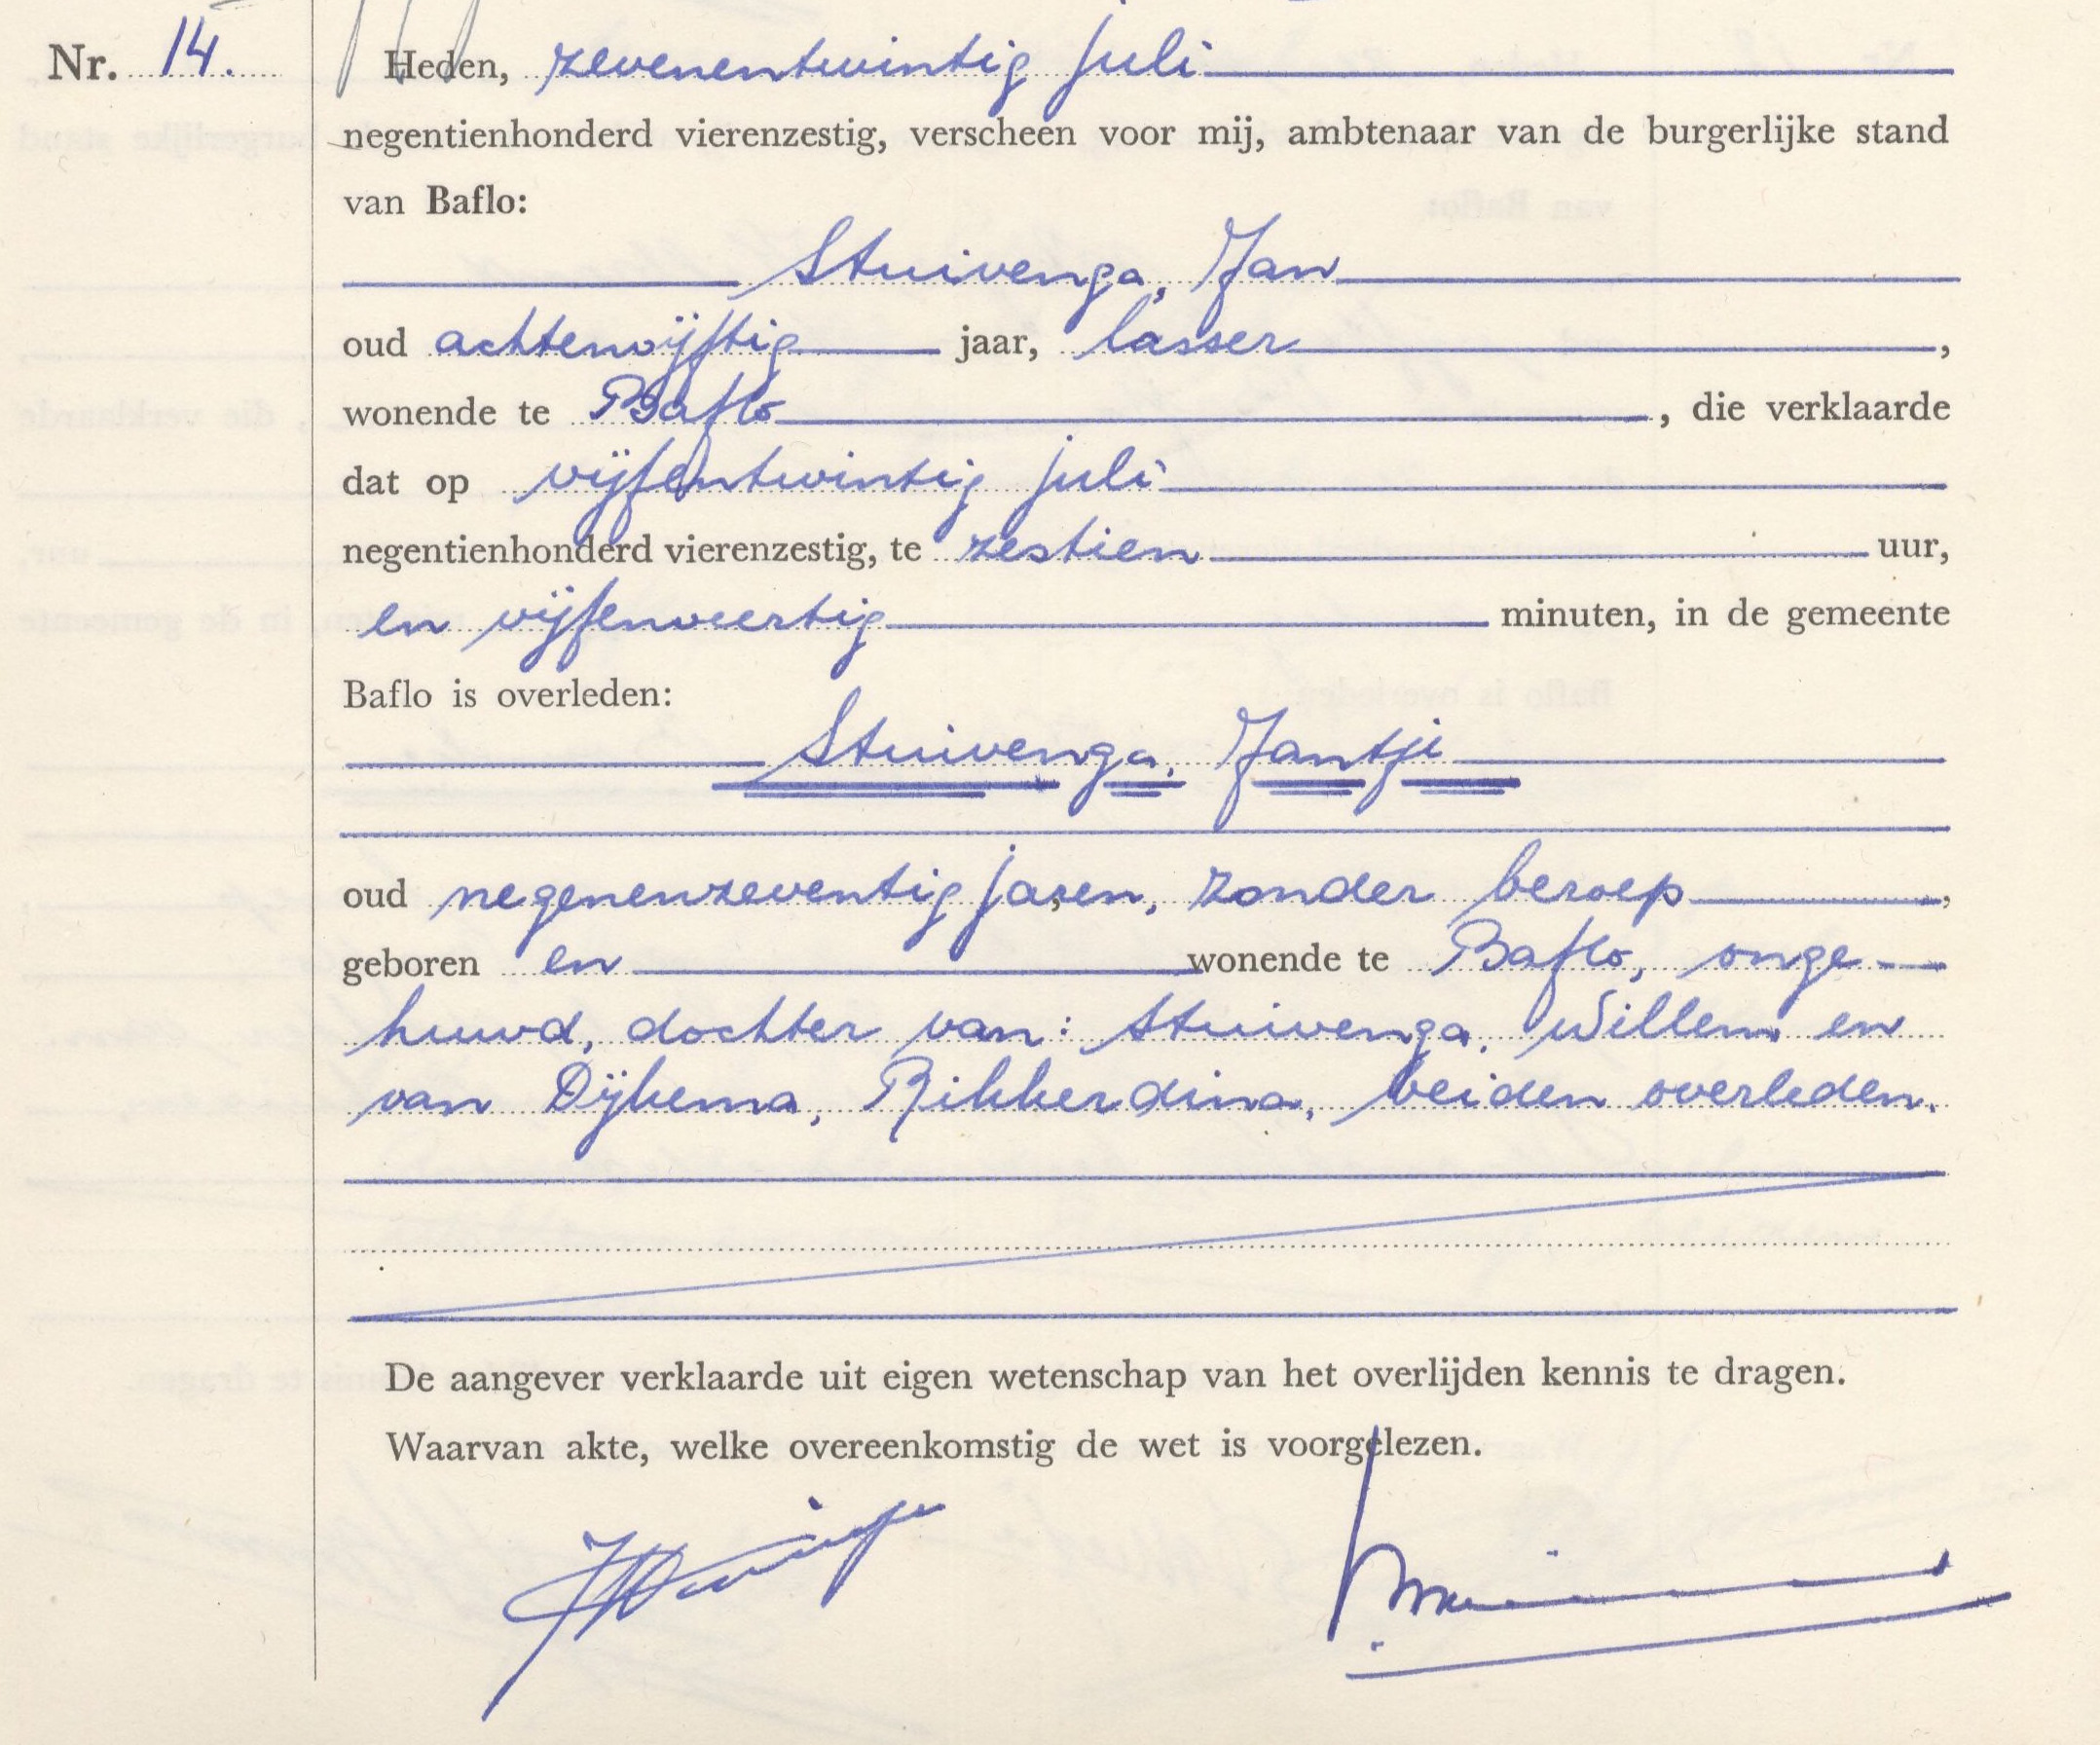 Nr. 14. Heden, zevenentwintig juli
negentienhonderd vierenzestig, verscheen voor mij, ambtenaar van de burgerlijke stand
van Baflo:
Stuivenga, Jan
oud achtenvijftig jaar, lasser,
wonende te Baflo, die verklaarde
dat op vijfentwintig juli
negentienhonderd vierenzestig, te zestien uur,
en vijfenveertig minuten, in de gemeente
Baflo is overleden:
Stuivenga, Jantje
oud negenenzeventig jaren, zonder beroep,
geboren en wonende te Baflo, onge-
huwd, dochter van: Stuivenga, Willem en
van Dijkema, Rikkerdina, beiden overleden.
De aangever verklaarde uit eigen wetenschap van het overlijden kennis te dragen.
Waarvan akte, welke overeenkomstig de wet is voorgelezen.